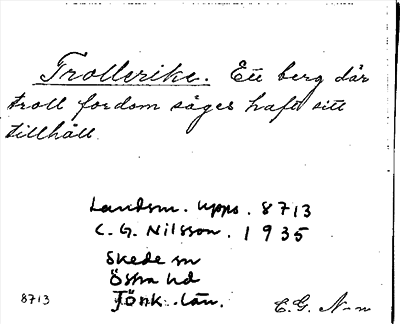 Trollerike. Ett berg där
troll fordom säges haft sitt
tillhåll.
Landsm. Upps. 8713
C. G. Nilsson. 1935
Skede sn
Östra hd
Jönk. län.
8713
C.G. N-n